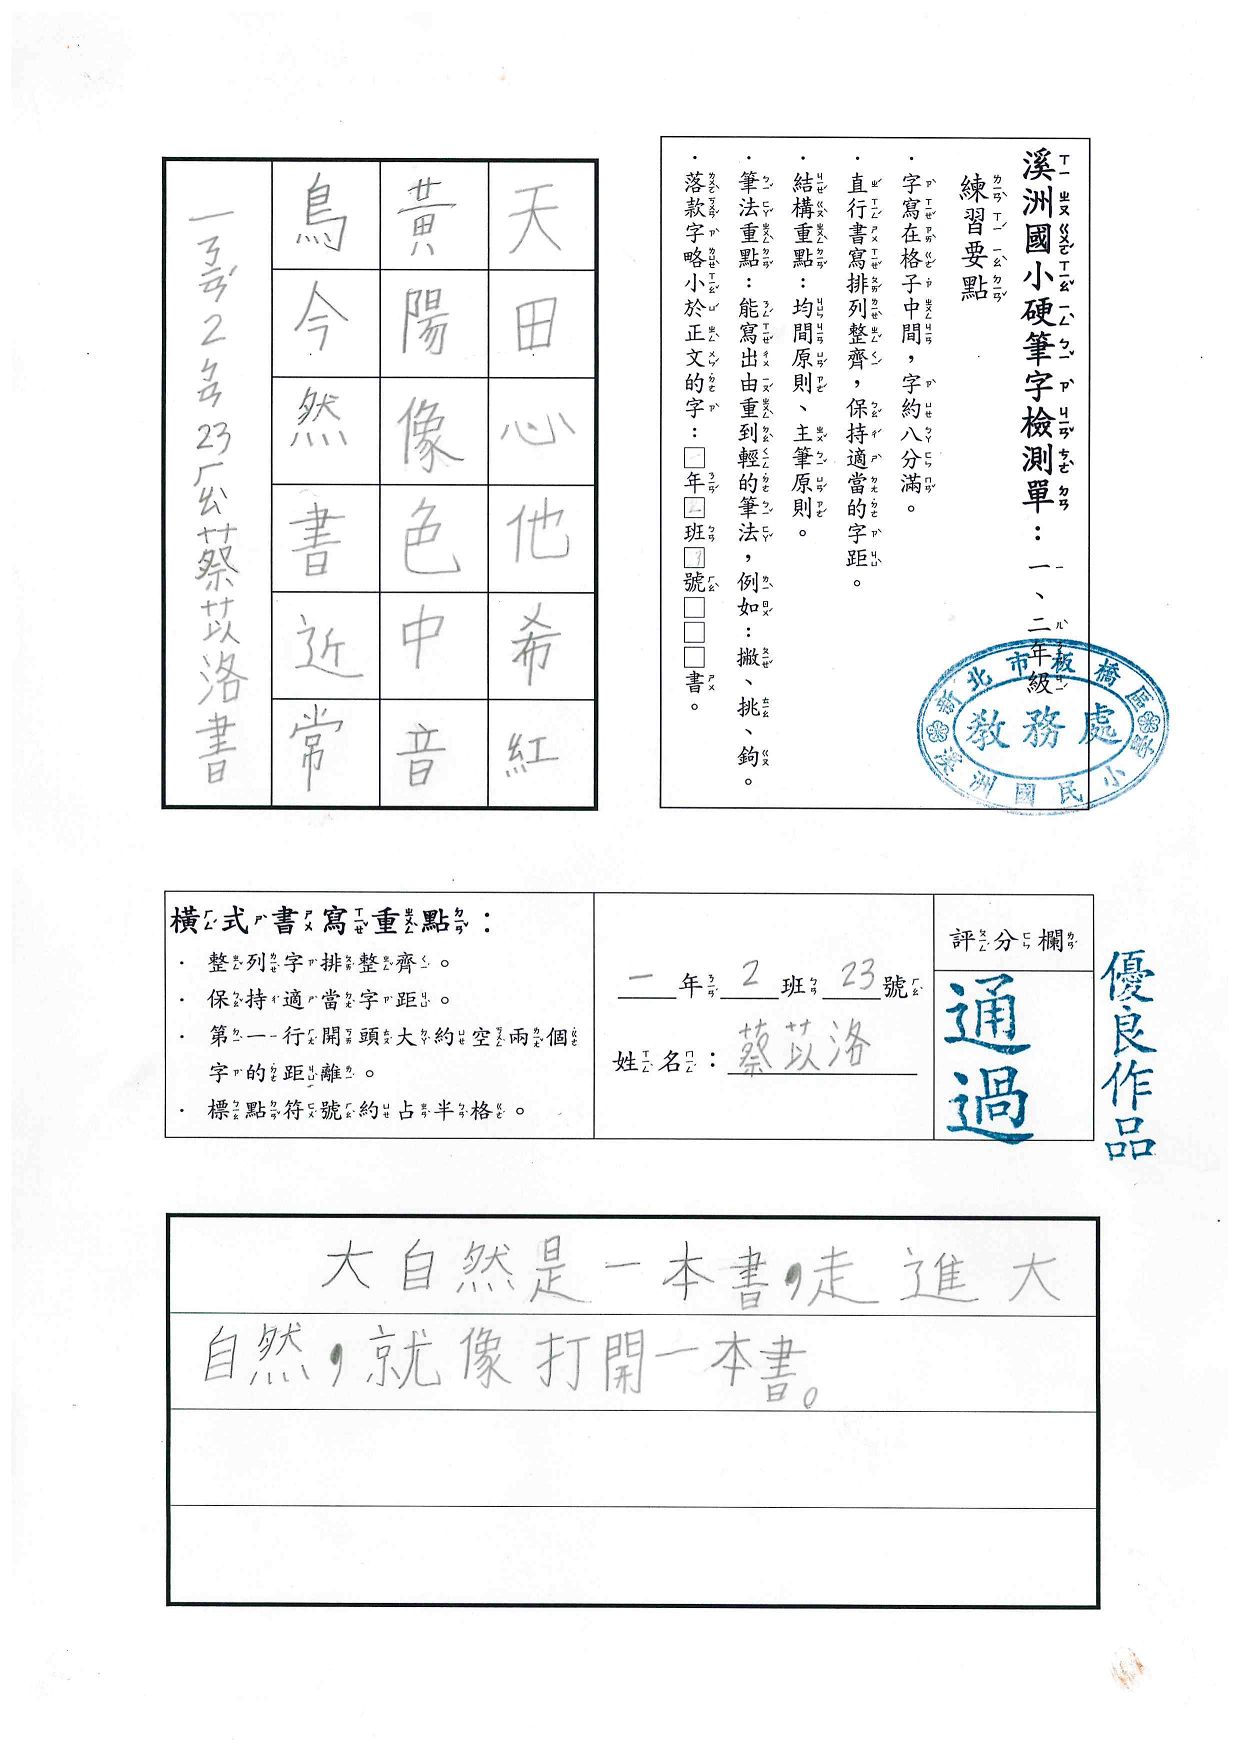 溪洲國小硬筆字檢測單：一、二年級
練習要點
．字寫在格子中間，字約八分滿。
．直行書寫排列整齊，保持適當的字距。
．結構重點：均間原則、主筆原則。
．筆法重點：能寫出由重到輕的筆法，例如：撇、挑、鉤。
．落款字略小於正文的字：□年□班□號□□□書。
新北市板橋區
教務處
溪洲國民小學
天田心他希紅
黃陽像色中音
鳥今然書近常
一ㄋㄧㄢˊ2ㄅㄢ23ㄏㄠˋ蔡苡洛書
橫式書寫重點：
．整列字排整齊。
．保持適當字距。
．第一行開頭大約空兩個
字的距離。
．標點符號約占半格。
一年2班23號
姓名：蔡苡洛
評分欄
通過
優良作品
大自然是一本書，走進大
自然，就像打開一本書。